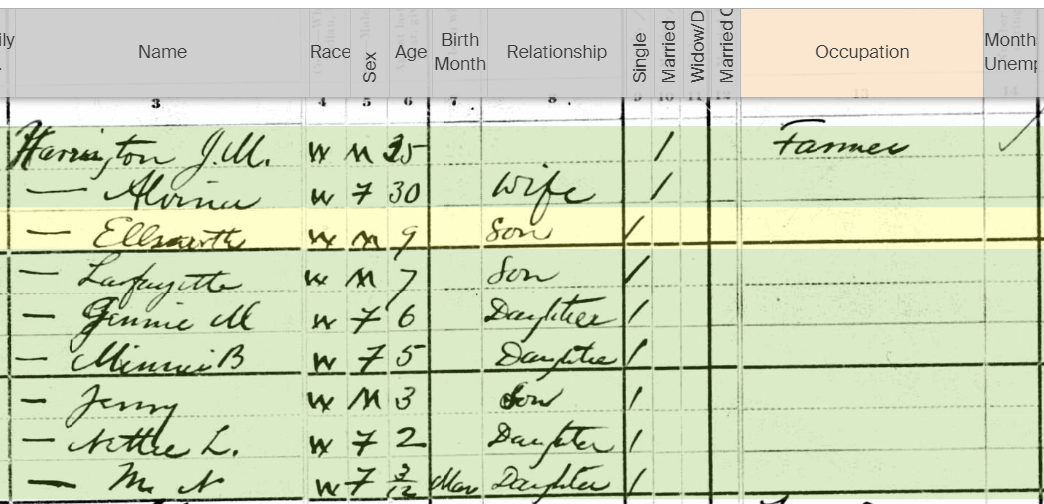 ily Name Race Sex Age Birth Month Relationship Single Married Widow/D Married C Occupation Month Unemp
3 4 5 6 7 8 9 10 11 12 13 14
Harrington J.M. W M 35 / Farmer ✓
— Alvina W F 30 Wife /
— Ellsworth W M 9 Son /
— Lafayette W M 7 Son /
— Jennie M W F 6 Daughter /
— Minnie B W F 5 Daughter /
— Jerry W M 3 Son /
— Nettie L. W F 2 Daughter /
— M. N W F 3/12 Mar Daughter /